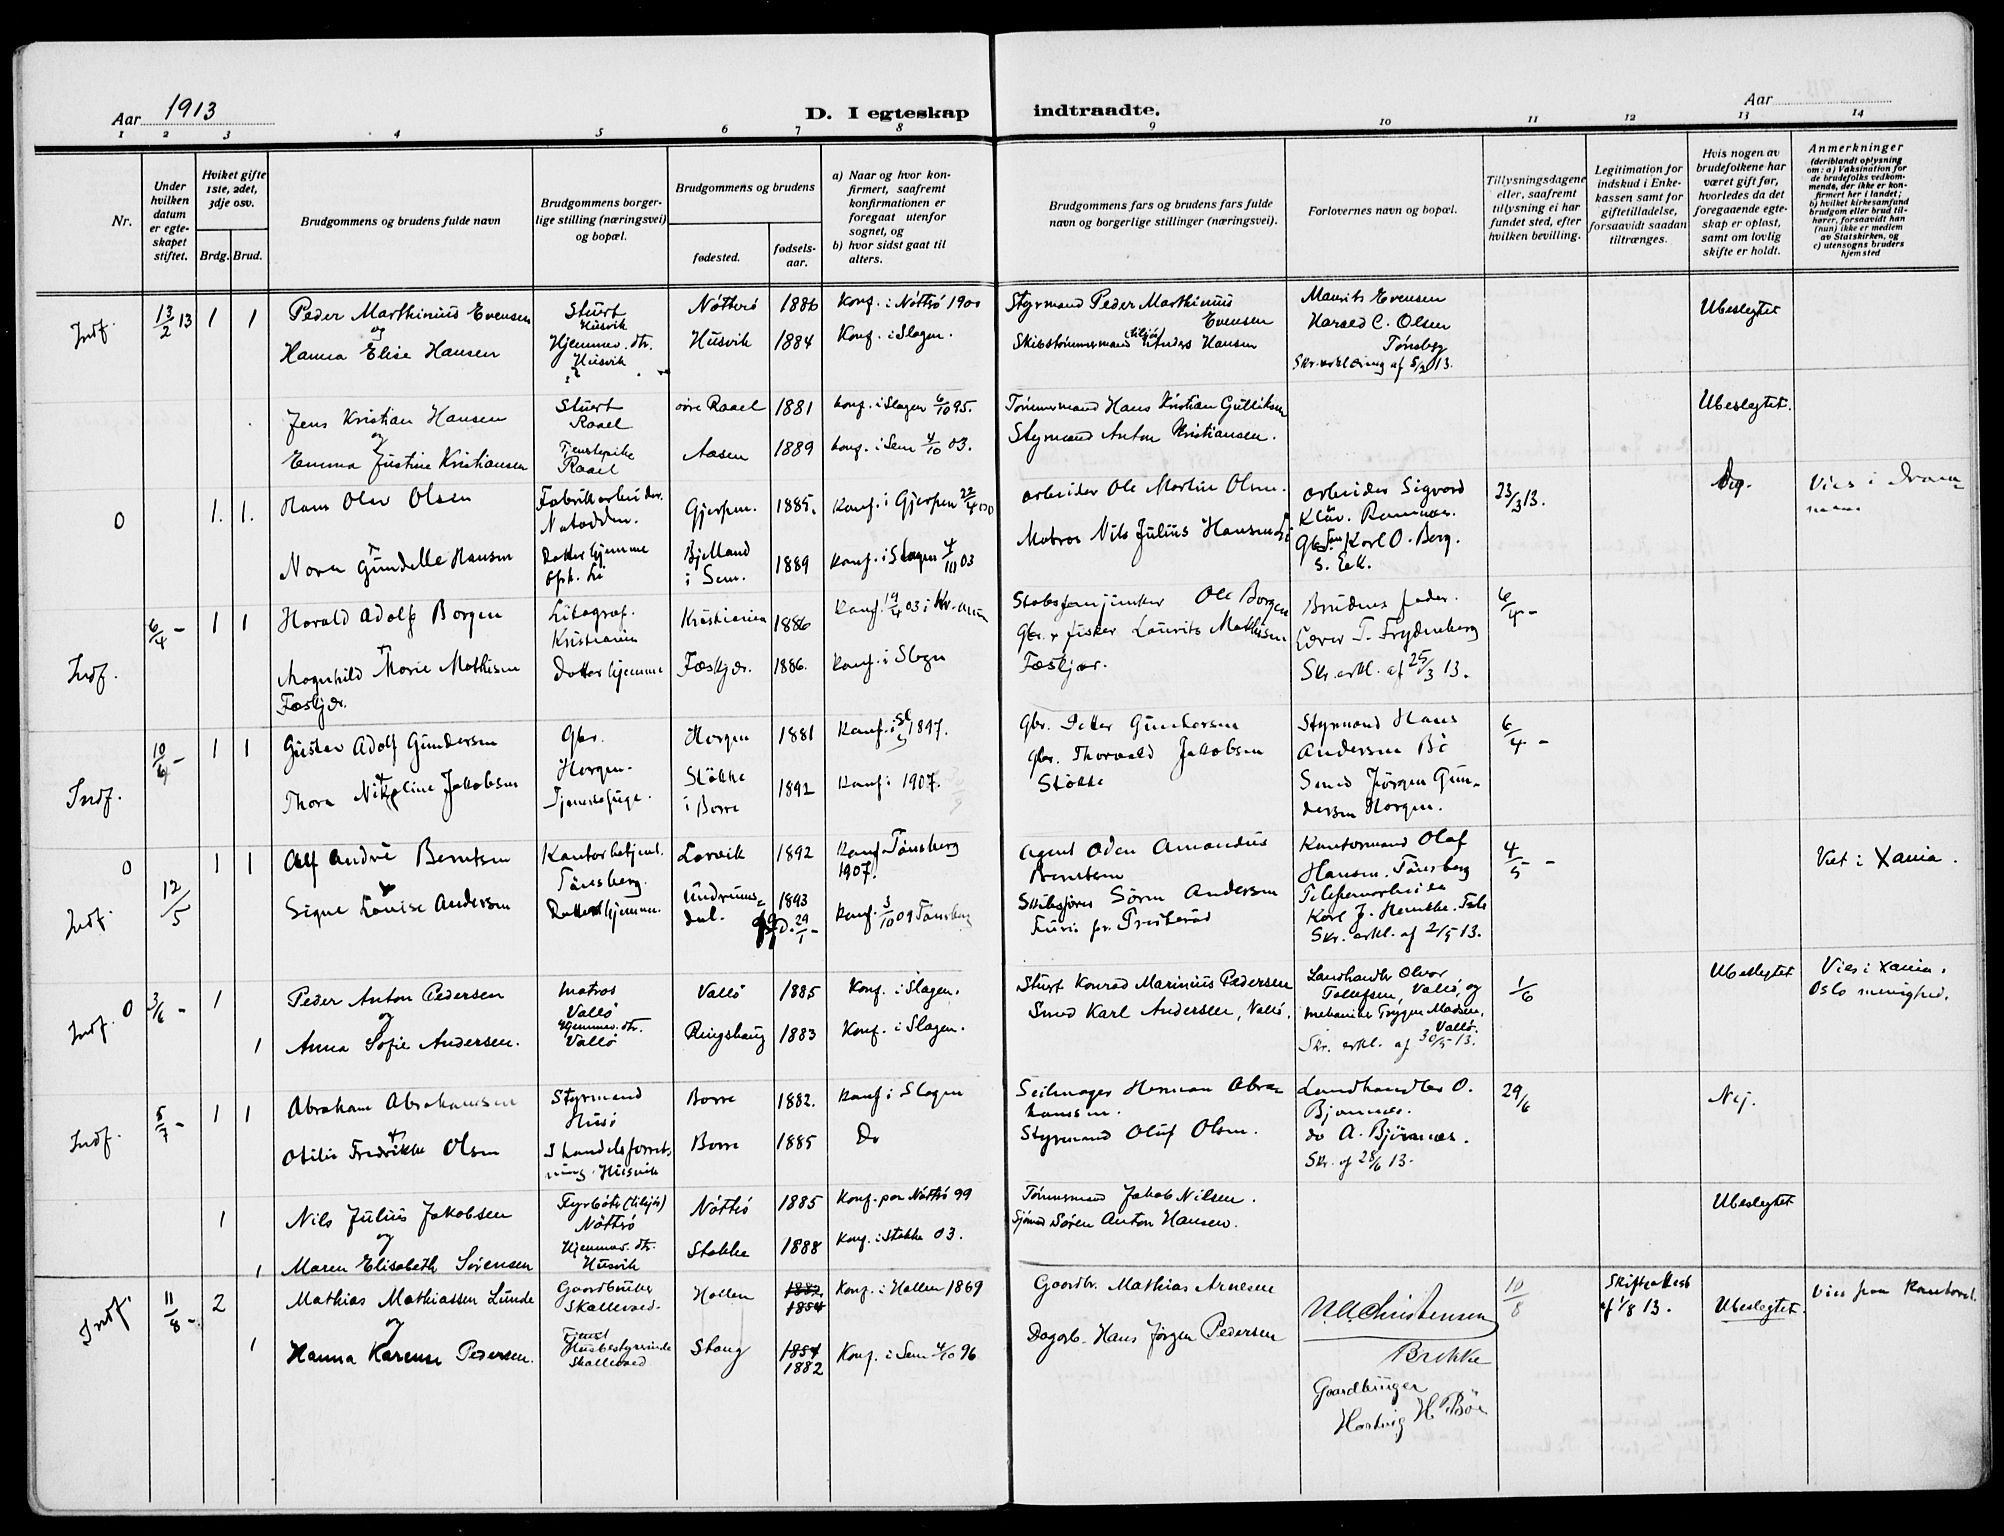 Aar 1913
D. I egteskap indtraadte.
Aar
1 2 3 4 5 6 7 8 9 10 11 12 13 14
Nr.
Under hvilken datum er egteskapet stiftet.
Hviket gifte 1ste, 2det, 3dje osv.
Brdg. Brud.
Brudgommens og brudens fulde navn
Brudgommens borgerlige stilling (næringsvei) og bopæl.
Brudgommens og brudens
fødested.
fødselsaar.
a) Naar og hvor konfirmert, saafremt konfirmationen er foregaat utenfor sognet, og
b) hvor sidst gaat til alters.
Brudgommens fars og brudens fars fulde navn og borgerlige stillinger (næringsvei).
Forlovernes navn og bopæl.
Tillysningsdagene eller, saafremt tillysning ei har fundet sted, efter hvilken bevilling.
Legitimation for indskud i Enkekassen samt for giftetilladelse, forsaavidt saadan tiltrænges.
Hvis nogen av brudefolkene har været gift før, hvorledes da det foregaaende egteskap er opløst, samt om lovlig skifte er holdt.
Anmerkninger
(deriblandt oplysning om: a) Vaksination for de brudefolks vedkommende, der ikke er konfirmert her i landet; b) hvilket kirkesamfund brudgom eller brud tilhører, forsaavidt han (hun) ikke er medlem av Statskirken, og c) utensogns bruders hjemsted
Indf. 13/2 13 1 1 Peder Marthinius Evensen Sturt Husvik Nøtterø 1886 Konf. i Nøttrø 1900 Styrmand Peder Marthinius Evensen Maurits Evensen Ubeslegtet
og
Hanna Elise Hansen Hjemmev. dtr. Husvik Husvik 1884 Konf. i Slagen. Skibstømmermand Anders Hansen Harald C. Olsen Tønsberg
Skr. erklæring af 5/2 13.
Jens Kristian Hansen Sturt Raael øvre Raael 1881 konf. i Slagen 6/10 95. Tømmermand Hans Kristian Gulliksen Ubeslegtet.
og
Emma Justine Kristiansen Tjenstepike Raael Aasen 1889 konf. i Sem 4/10 03. Styrmand Anton Kristiansen.
0 1. 1. Hans Olav Olsen Fabrikarbeider Notodden. Gjerpen. 1885. Konf. i Gjerpen arbeider Ole Martin Olsen. arbeider Sigvard 23/3 13. Vies i Drammen
Nora Gundelle Hansen Datter hjemme Bjelland i Sem. 1889 Konf. i Slagen 03 Matros Nils Julius Hansen Karl O. Berg. S. Eek.
Indf. 6/4 - 1 1 Harald Adolf Borgen Litograf. Kristiania Kristiania 1886 Konf. 19/4 03 i Ole Borgen Brudens fader. 6/4 -
Magnhild Marie Mathisen Datter hjemme Fæskjær. 1886. Konf. i Slagen Gbr. & fisker Laurits Mathisen Lærer T. Frydenberg
Fæskjær. Fæskjær. Skr. erkl. af 25/3 13.
Indf. 10/4 - 1 1 Gustav Adolf Gundersen Gbr. Horgen Horgen 1881 Konf. i 1897. Gbr. Petter Gundersen Styrmand Hans Andersen Bø 6/4 -
Thora Nikoline Jakobsen Tjenestepige. Støkke i Borre 1892 Konf. i 1907. Gbr. Thorvald Jakobsen Støkke Smed Jørgen Gundersen Horgen.
0 Indf. 12/5 1 1 Alf André Berntsen Kontorbetjent. Tønsberg. Larvik 1892 Konf. Tønsberg 1907. Agent Oden Amandus Berntsen Kontormand Olaf Hansen. Tønsberg 4/5 - Viet i Xania.
Signe Louise Andersen Datter hjemme. Undrumsdal. 1893 D. 29/1 - Konf. 3/10 09 Tønsberg Skibsfører Søren Andersen Telefonarbeider Karl J. Henrikke
Skr. erkl. af 2/5 13.
Indf. 0 3/6 - 1 Peder Anton Pedersen Matros Vallø Vallø 1885 Konf. i Slagen. Sturt Konrad Marinius Pedersen Landhandl. Olvar Tollefsen, Vallø, og 1/6 Ubeslegtet Vies i Xania. Oslo menighed.
og
1 Anna Sofie Andersen. Hjemmev. dtr. Vallø Ringshaug 1883 Konf. i Slagen. Smed Karl Andersen, Vallø. mekaniker Trygve Madsen, Vallø.
Skr. erkl. af 30/5 13.
Indf. 5/7 - 1 1 Abraham Abrahamsen Styrmand Husø Borre 1882. Konf. i Slagen Seilmager Herman Abrahamsen. Landhandler O. Bjønnes. 29/6 Nej.
Otilie Fredrikke Olsen I handelsforretning. Husvik Borre 1885 Do Styrmand Oluf Olsen. do A. Bjønnes.
Skr. af 28/6 13.
1 Nils Julius Jakobsen Fyrbøter (tilsjøs) Nøttrø Nøttrø 1885 Konf. paa Nøttrø 99 Tømmermand Jakob Nilsen. Ubeslegtet
og
1 Maren Elisabeth Sørensen Hjemmev. dtr. Husvik Stokke 1888 Konf. i Stokke 03. Sjømd Søren Anton Hansen.
Indf. 11/8 - 2 Mathias Mathiassen Lunde Gaardbruker Skallevold. Hollen 1882 1854 Konf. i Hollen 1869 Gaardbr. Mathias Arnesen Christensen 10/8 Skifteattest af 1/8 13. Ubeslegtet. Vies paa Kontoret.
og
1 Hanna Karense Pedersen. Husbestyrerinde Skallevold Stang 1854 1882 Konf. i Sem 4/10 96 Dagarb. Hans Jørgen Pedersen Brekke
Gaardbruger
Hartvig H. Bøe